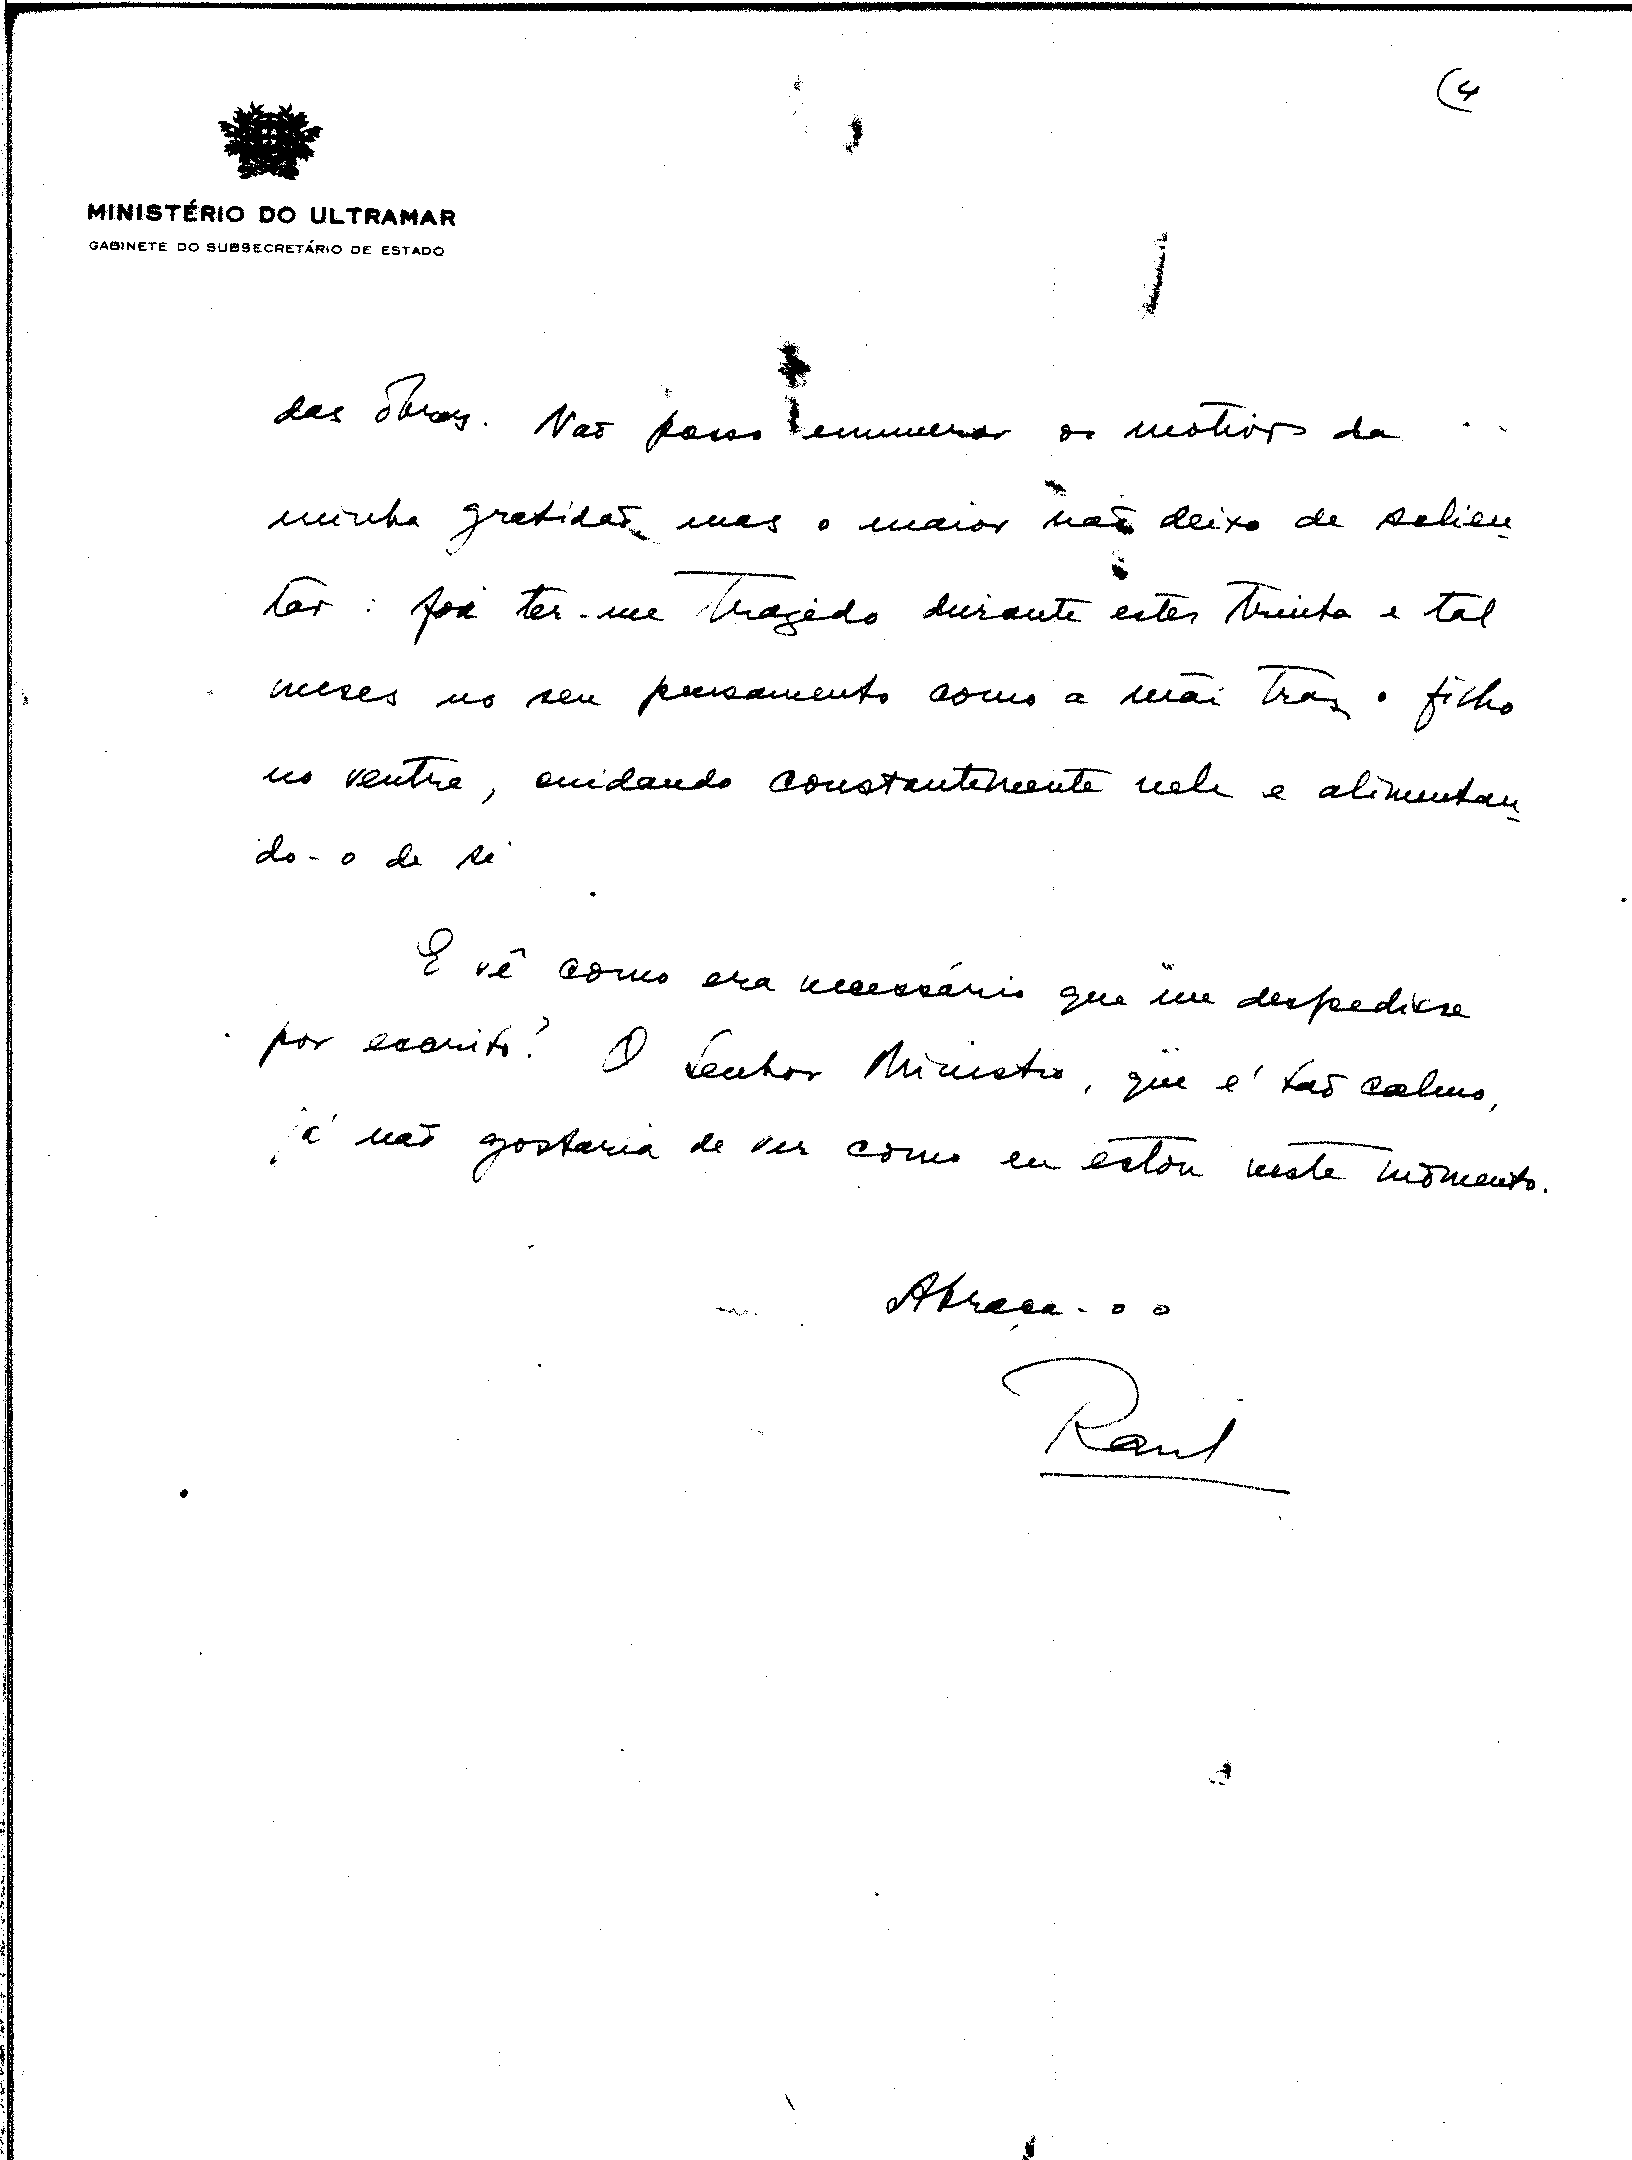 (4
MINISTÉRIO DO ULTRAMAR
GABINETE DO SUBSECRETÁRIO DE ESTADO
das obras. Não posso enumerar os motivos da
minha gratidão mas o maior não deixo de salien-
tar: foi ter-me trazido durante estes trinta e tal
meses no seu pensamento como a mãi traz o filho
no ventre, cuidando constantemente nele e alimentan-
do-o de si
E vê como era necessário que me despedisse
por escrito? O Senhor Ministro, que é tão calmo,
já não gostaria de ver como eu estou neste momento.
Abraça-o o
Raul